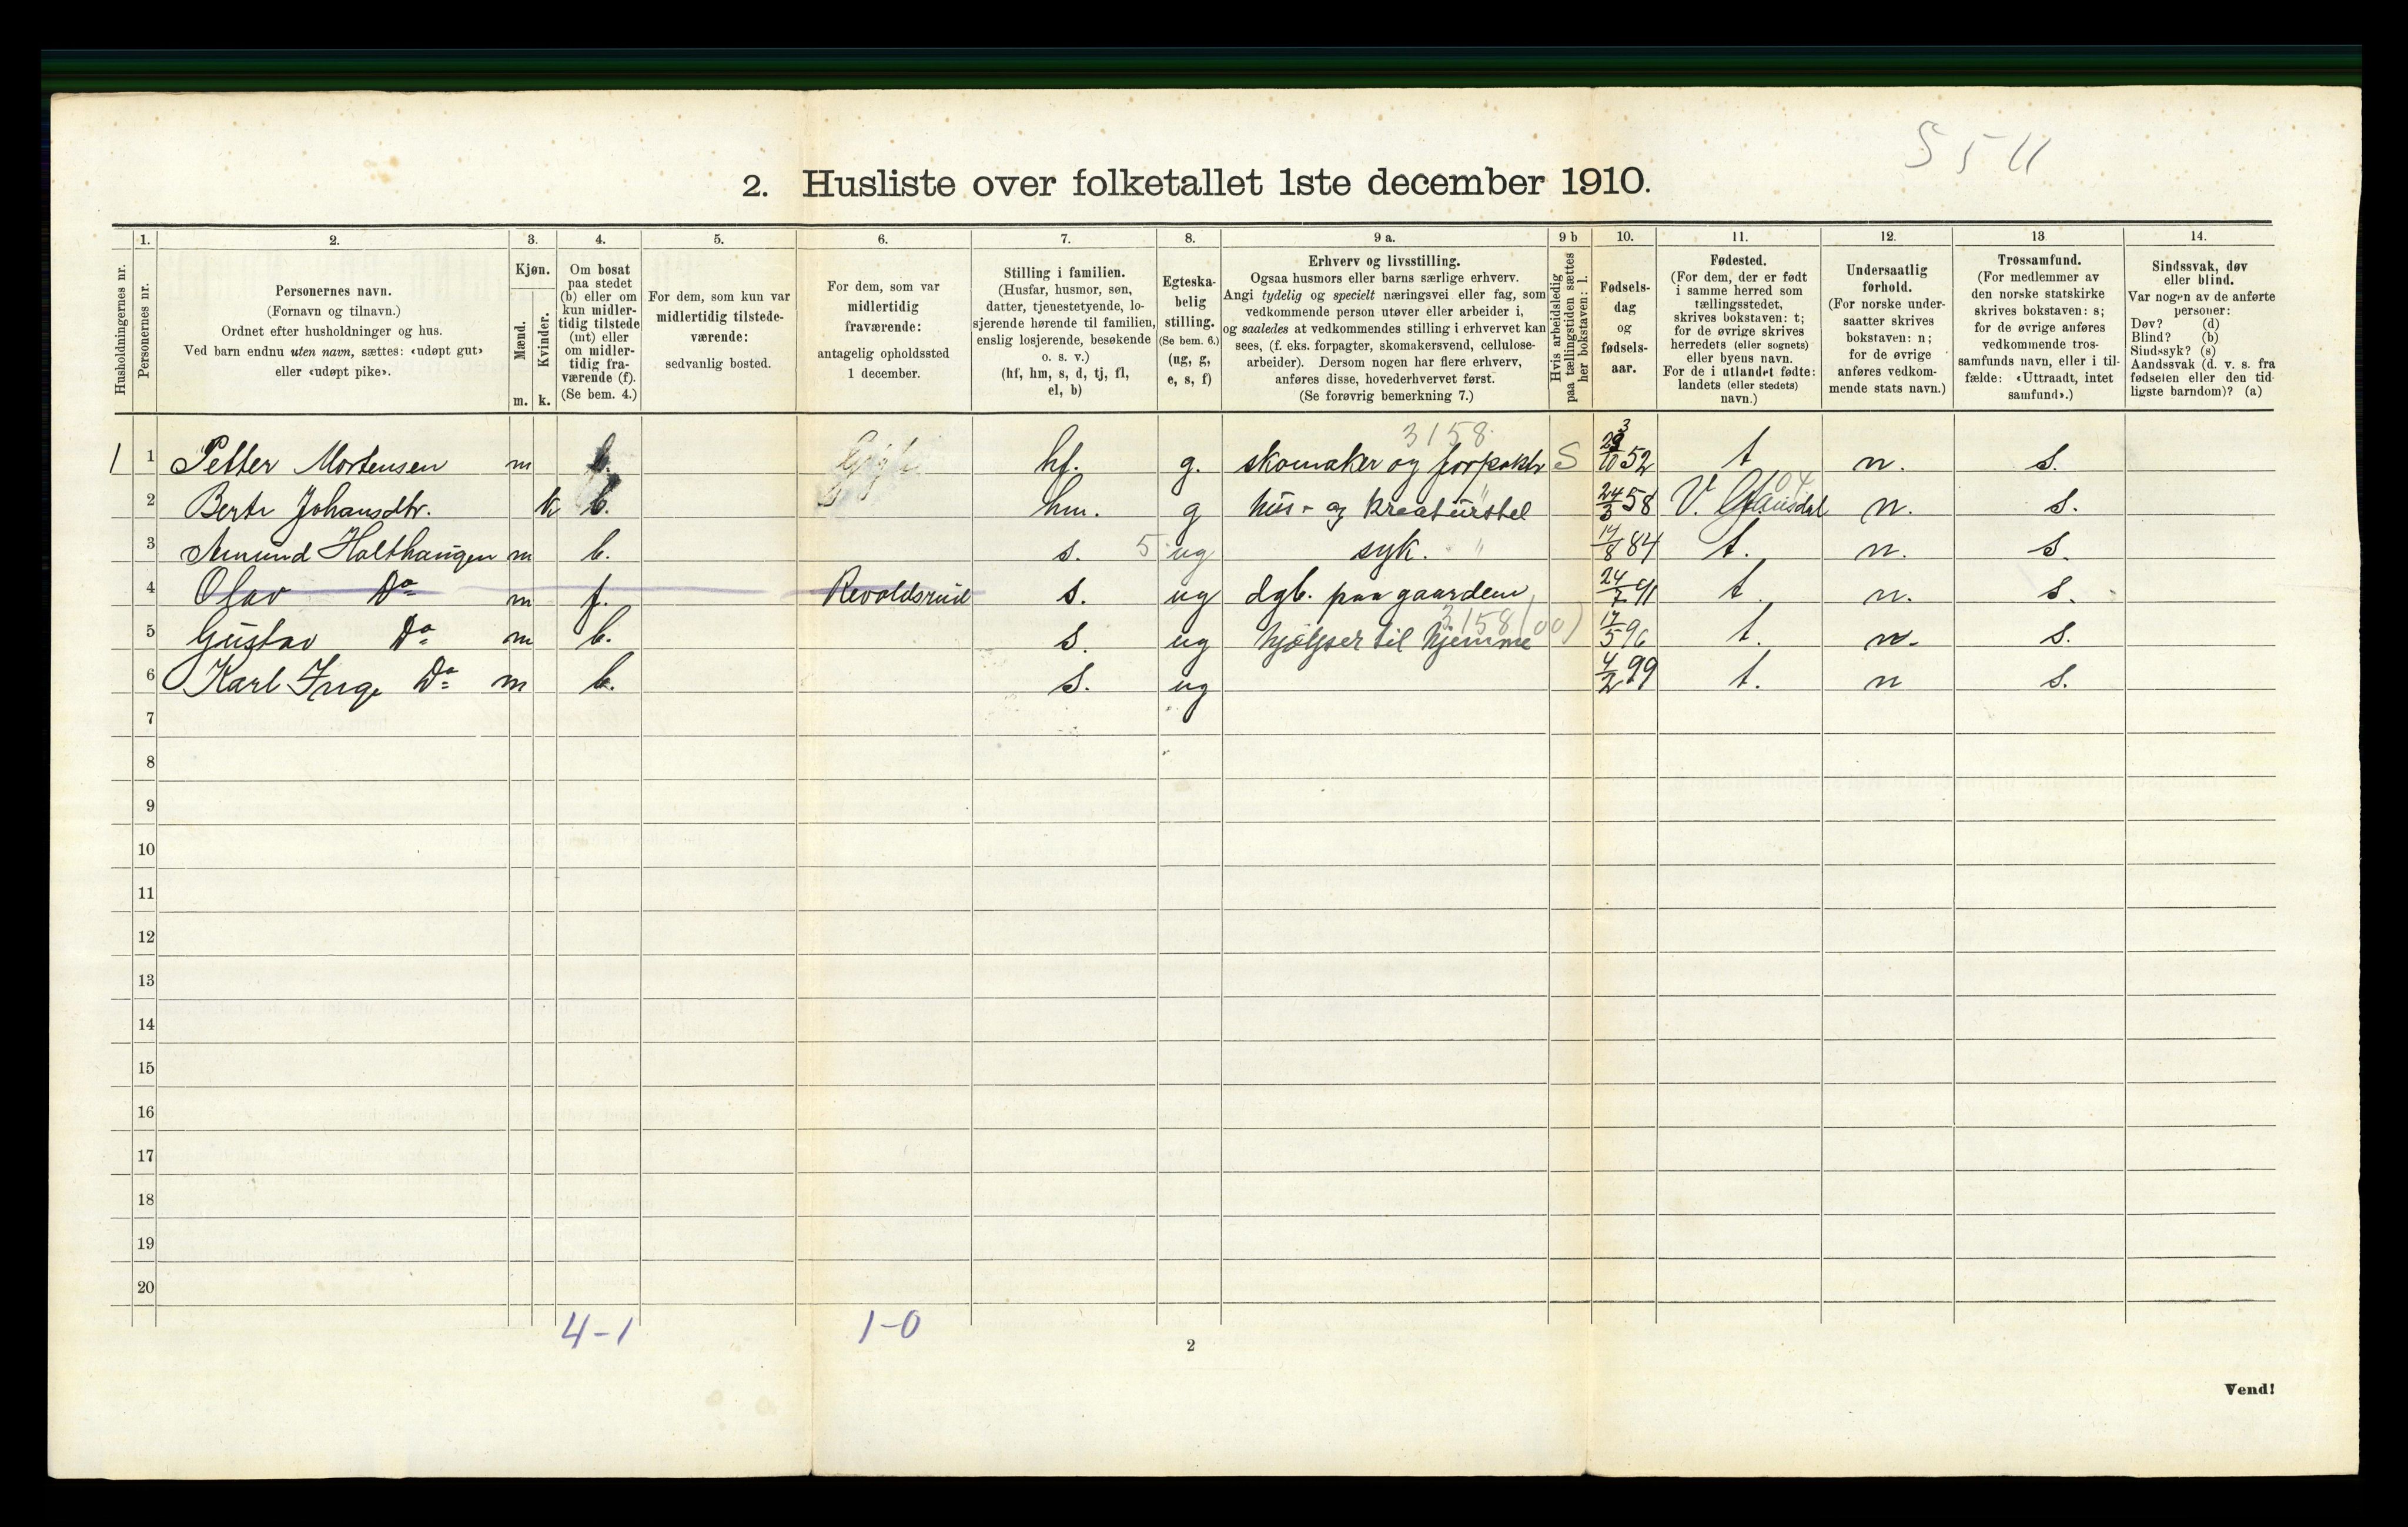 S 5 11
2. Husliste over folketallet 1ste december 1910.
Husholdningernes nr.
1.
Personernes nr.
2.
Personernes navn.
(Fornavn og tilnavn.)
Ordnet efter husholdninger og hus.
Ved barn endnu uten navn, sættes: «udøpt gut»
eller «udøpt pike».
3.
Kjøn.
Mænd.
Kvinder.
m. k.
4.
Om bosat
paa stedet
(b) eller om
kun midler-
tidig tilstede
(mt) eller
om midler-
tidig fra-
værende (f).
(Se bem. 4.)
5.
For dem, som kun var
midlertidig tilstede-
værende:
sedvanlig bosted.
6.
For dem, som var
midlertidig
fraværende:
antagelig opholdssted
1 december.
7.
Stilling i familien.
(Husfar, husmor, søn,
datter, tjenestetyende, lo-
sjerende hørende til familien,
enslig losjerende, besøkende
o. s. v.)
(hf, hm, s, d, tj, fl,
el, b)
8.
Egteska-
belig
stilling.
(Se bem. 6.)
(ug, g,
e, s, f)
9 a.
Erhverv og livsstilling.
Ogsaa husmors eller barns særlige erhverv.
Angi tydelig og specielt næringsvei eller fag, som
vedkommende person utøver eller arbeider i,
og saaledes at vedkommendes stilling i erhvervet kan
sees, (f. eks. forpagter, skomakersvend, cellulose-
arbeider). Dersom nogen har flere erhverv,
anføres disse, hovederhvervet først.
(Se forøvrig bemerkning 7.)
9 b
Hvis arbeidsledig
paa tællingstiden sættes
her bokstaven: l.
10.
Fødsels-
dag
og
fødsels-
aar.
11.
Fødested.
(For dem, der er født
i samme herred som
tællingsstedet,
skrives bokstaven: t;
for de øvrige skrives
herredets (eller sognets)
eller byens navn.
For de i utlandet fødte:
landets (eller stedets)
navn.)
12.
Undersaatlig
forhold.
(For norske under-
saatter skrives
bokstaven: n;
for de øvrige
anføres vedkom-
mende stats navn.)
13
Trossamfund.
(For medlemmer av
den norske statskirke
skrives bokstaven: s;
for de øvrige anføres
vedkommende tros-
samfunds navn, eller i til-
fælde: «Uttraadt, intet
samfund».)
14.
Sindssvak, døv
eller blind.
Var nogen av de anførte
personer:
Døv? (d)
Blind? (b)
Sindssyk? (s)
Aandssvak (d. v. s. fra
fødselen eller den tid-
ligste barndom)? (a)
3158
1 1 Petter Mortensen m b. hf. g. skomaker og forpaktr S 52 t n. s.
2 Berte Johansdtr. k b. hm. g hus- og kreaturstel 24/3 58 V. Gausdal 04 n. s.
3 Amund Holthaugen m b. s. 5 ug syk. " 14/8 84 t. n. s.
4 Olav Do m f. Revoldsrud s. ug dgb. paa gaarden 24/7 91 t. n. s.
3158 (00)
5 Gustav Do m b. s. ug hjælper til hjemme 17/5 96 t. n. s.
6 Karl Inge Do m b. s. ug 4/2 99 t. n s.
7
8
9
10
11
12
13
14
15
16
17
18
19
20
4-1 1-0
2
Vend!